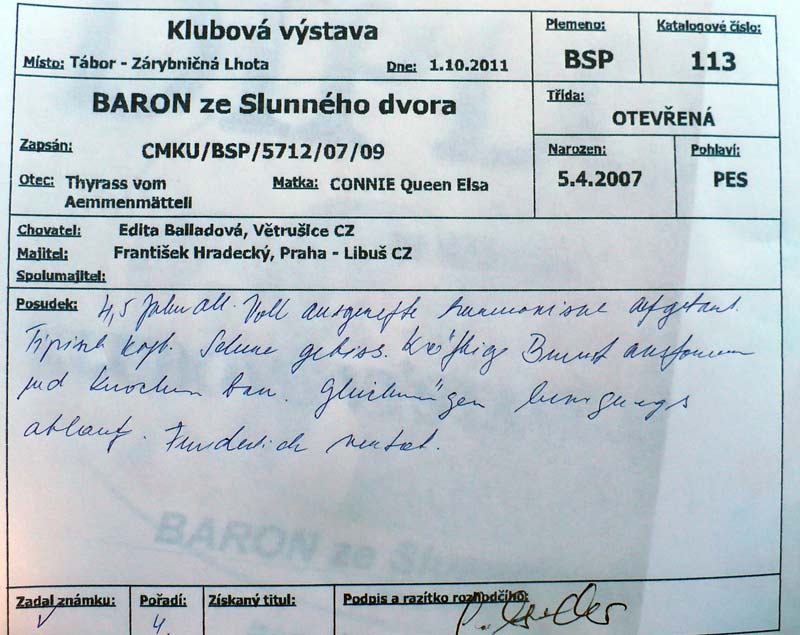 Klubová výstava
Místo: Tábor - Zárybničná Lhota Dne: 1.10.2011
Plemeno: BSP
Katalogové číslo: 113
BARON ze Slunného dvora
Třída: OTEVŘENÁ
Zapsán: CMKU/BSP/5712/07/09
Narozen: 5.4.2007
Pohlaví: PES
Otec: Thyrass vom Matka: CONNIE Queen Elsa
Aemmenmätteli
Chovatel: Edita Balladová, Větrušice CZ
Majitel: František Hradecký, Praha - Libuš CZ
Spolumajitel:
Posudek: 4,5 Jahr alt. Voll ausgereifte harmonisch aufgebaut.
Tipisch Kopf. Schöne gebiss. Kräftige Brust
und Knochen bau. Gleichmäsigen bewegungs
ablauf. Freundlich
BARON ze
Zadal známku: Pořadí: Získaný titul: Podpis a razítko rozhodčího:
V 4.